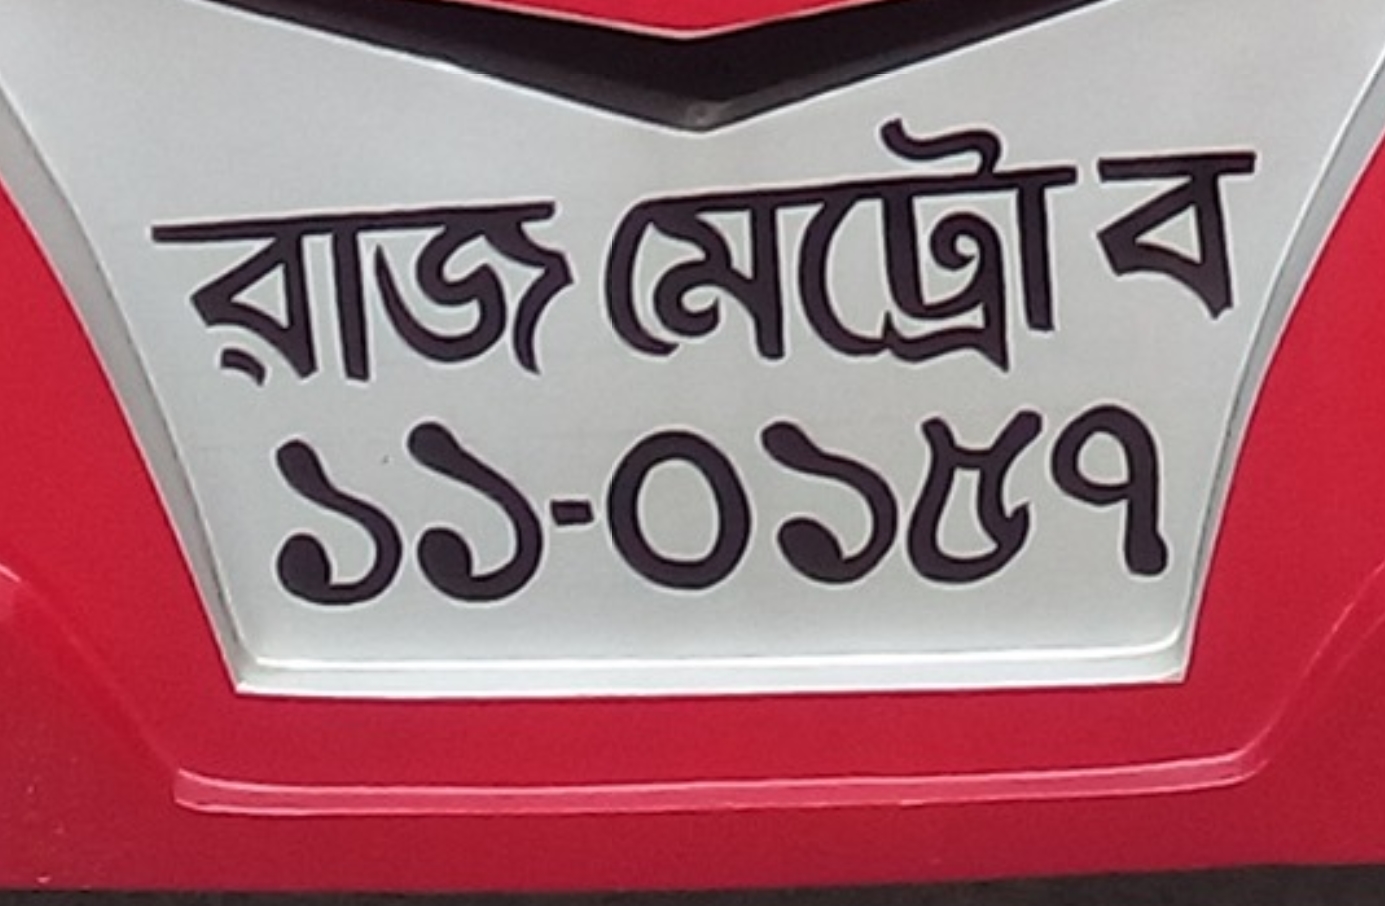 রাজ মেট্রো ব
১১-০১৫৭